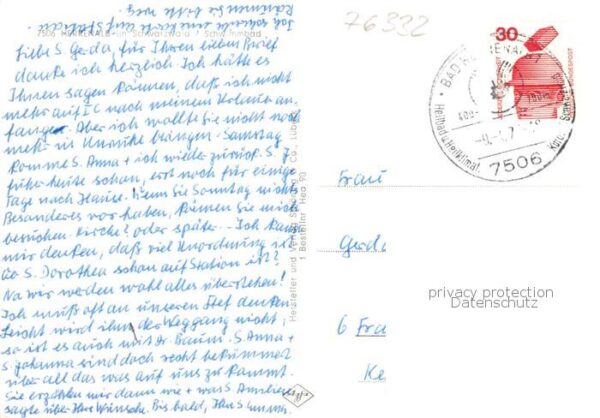 Räumen Sie bitte weg.
Ich schreibe auf eine Karte auf Station
7506 HERRENALB im Schwarzwald Schwimmbad
Liebe S. Gerda, für Ihren lieben Brief
danke ich herzlich. Ich hätte es
Ihnen sagen können, daß ich nicht
mehr auf I C nach meinem Urlaub an-
fange. Aber ich wollte Sie nicht noch
mehr in Unruhe bringen. Samstag
komme S. Anna + ich wieder zurück. S. J.
fuhr heute schon, erst noch für einige
Tage nach Hause. Wenn Sie Sonntag nichts
Besonderes vor haben, können Sie mich
besuchen. Kirche? oder später... Ich kann
mir denken, daß viel Unordnung ist
wo S. Dorothea schon auf Station ist??
Na wir werden wohl alles überstehen!
Ich muß oft an unseren Chef denken.
Leicht wird ihm der Weggang nicht -
so ist es auch mit Dr. Baum. S. Anna +
S. Johanna sind doch recht bekümmert
über all das was auf uns zu kommt.
Sie erzählen mir dann wie + was S. Ameliese
sagte über Ihre Wünsche. Bis bald, Ihre S.
Hersteller und Verlag
Co., Lüb
Bestellnr. Hea 90
76332
30
DEUTSCHE BUNDESPOST
BAD HERRENALB
Heilbad u. Heilklimat. Kurort Schwarzwald
7506
Frau
Gerda
6 Fra
Ke
privacy protection
Datenschutz